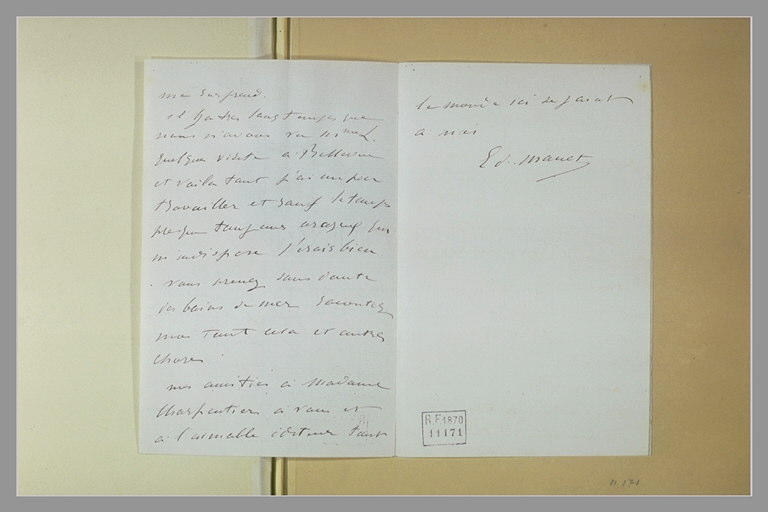 me surprend.
il y a très longtemps que
nous n'avons vu
quelque visite à Bellevue
et voilà tout j'ai un peu
travailler et sauf le temps
presque toujours orageux qui
m'indispose j'irais bien
vous prenez sans doute
des bains de mer racontez
moi tout cela et autres
choses
mes amitiés à Madame
Charpentier à vous et
à l'aimable tout
le monde ici se joint
à moi
Ed. Manet
R.F. 1870
11171